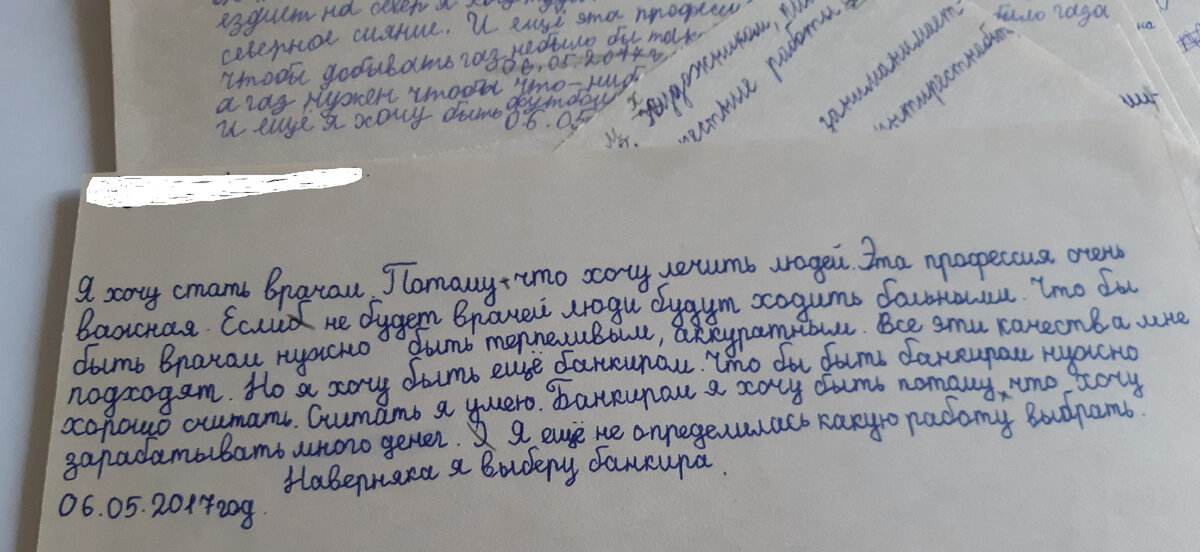 ездиет на север я хочу
северное сияние. И ещё эта професси
чтобы добывать газ небыло бы так
06.05.2017г.
а газ нужен чтобы что-ниб
И ещё я хочу быть футболи
06.05
художником,
работы
заниманимает-
интиреснабы
было газа
на
Я хочу стать врачом. Потому что хочу лечить людей. Эта профессия очень
важная. Еслиб не будет врачей люди будут ходить больными. Что бы
быть врачом нужно быть терпеливым, аккуратным. Все эти качества мне
подходят. Но я хочу быть ещё банкиром. Что бы быть банкиром нужно
хорошо считать. Считать я умею. Банкиром я хочу быть потому что хочу
зарабатывать много денег. Я Я ещё не определилась какую работу выбрать.
Наверняка я выберу банкира.
06.05.2017год.